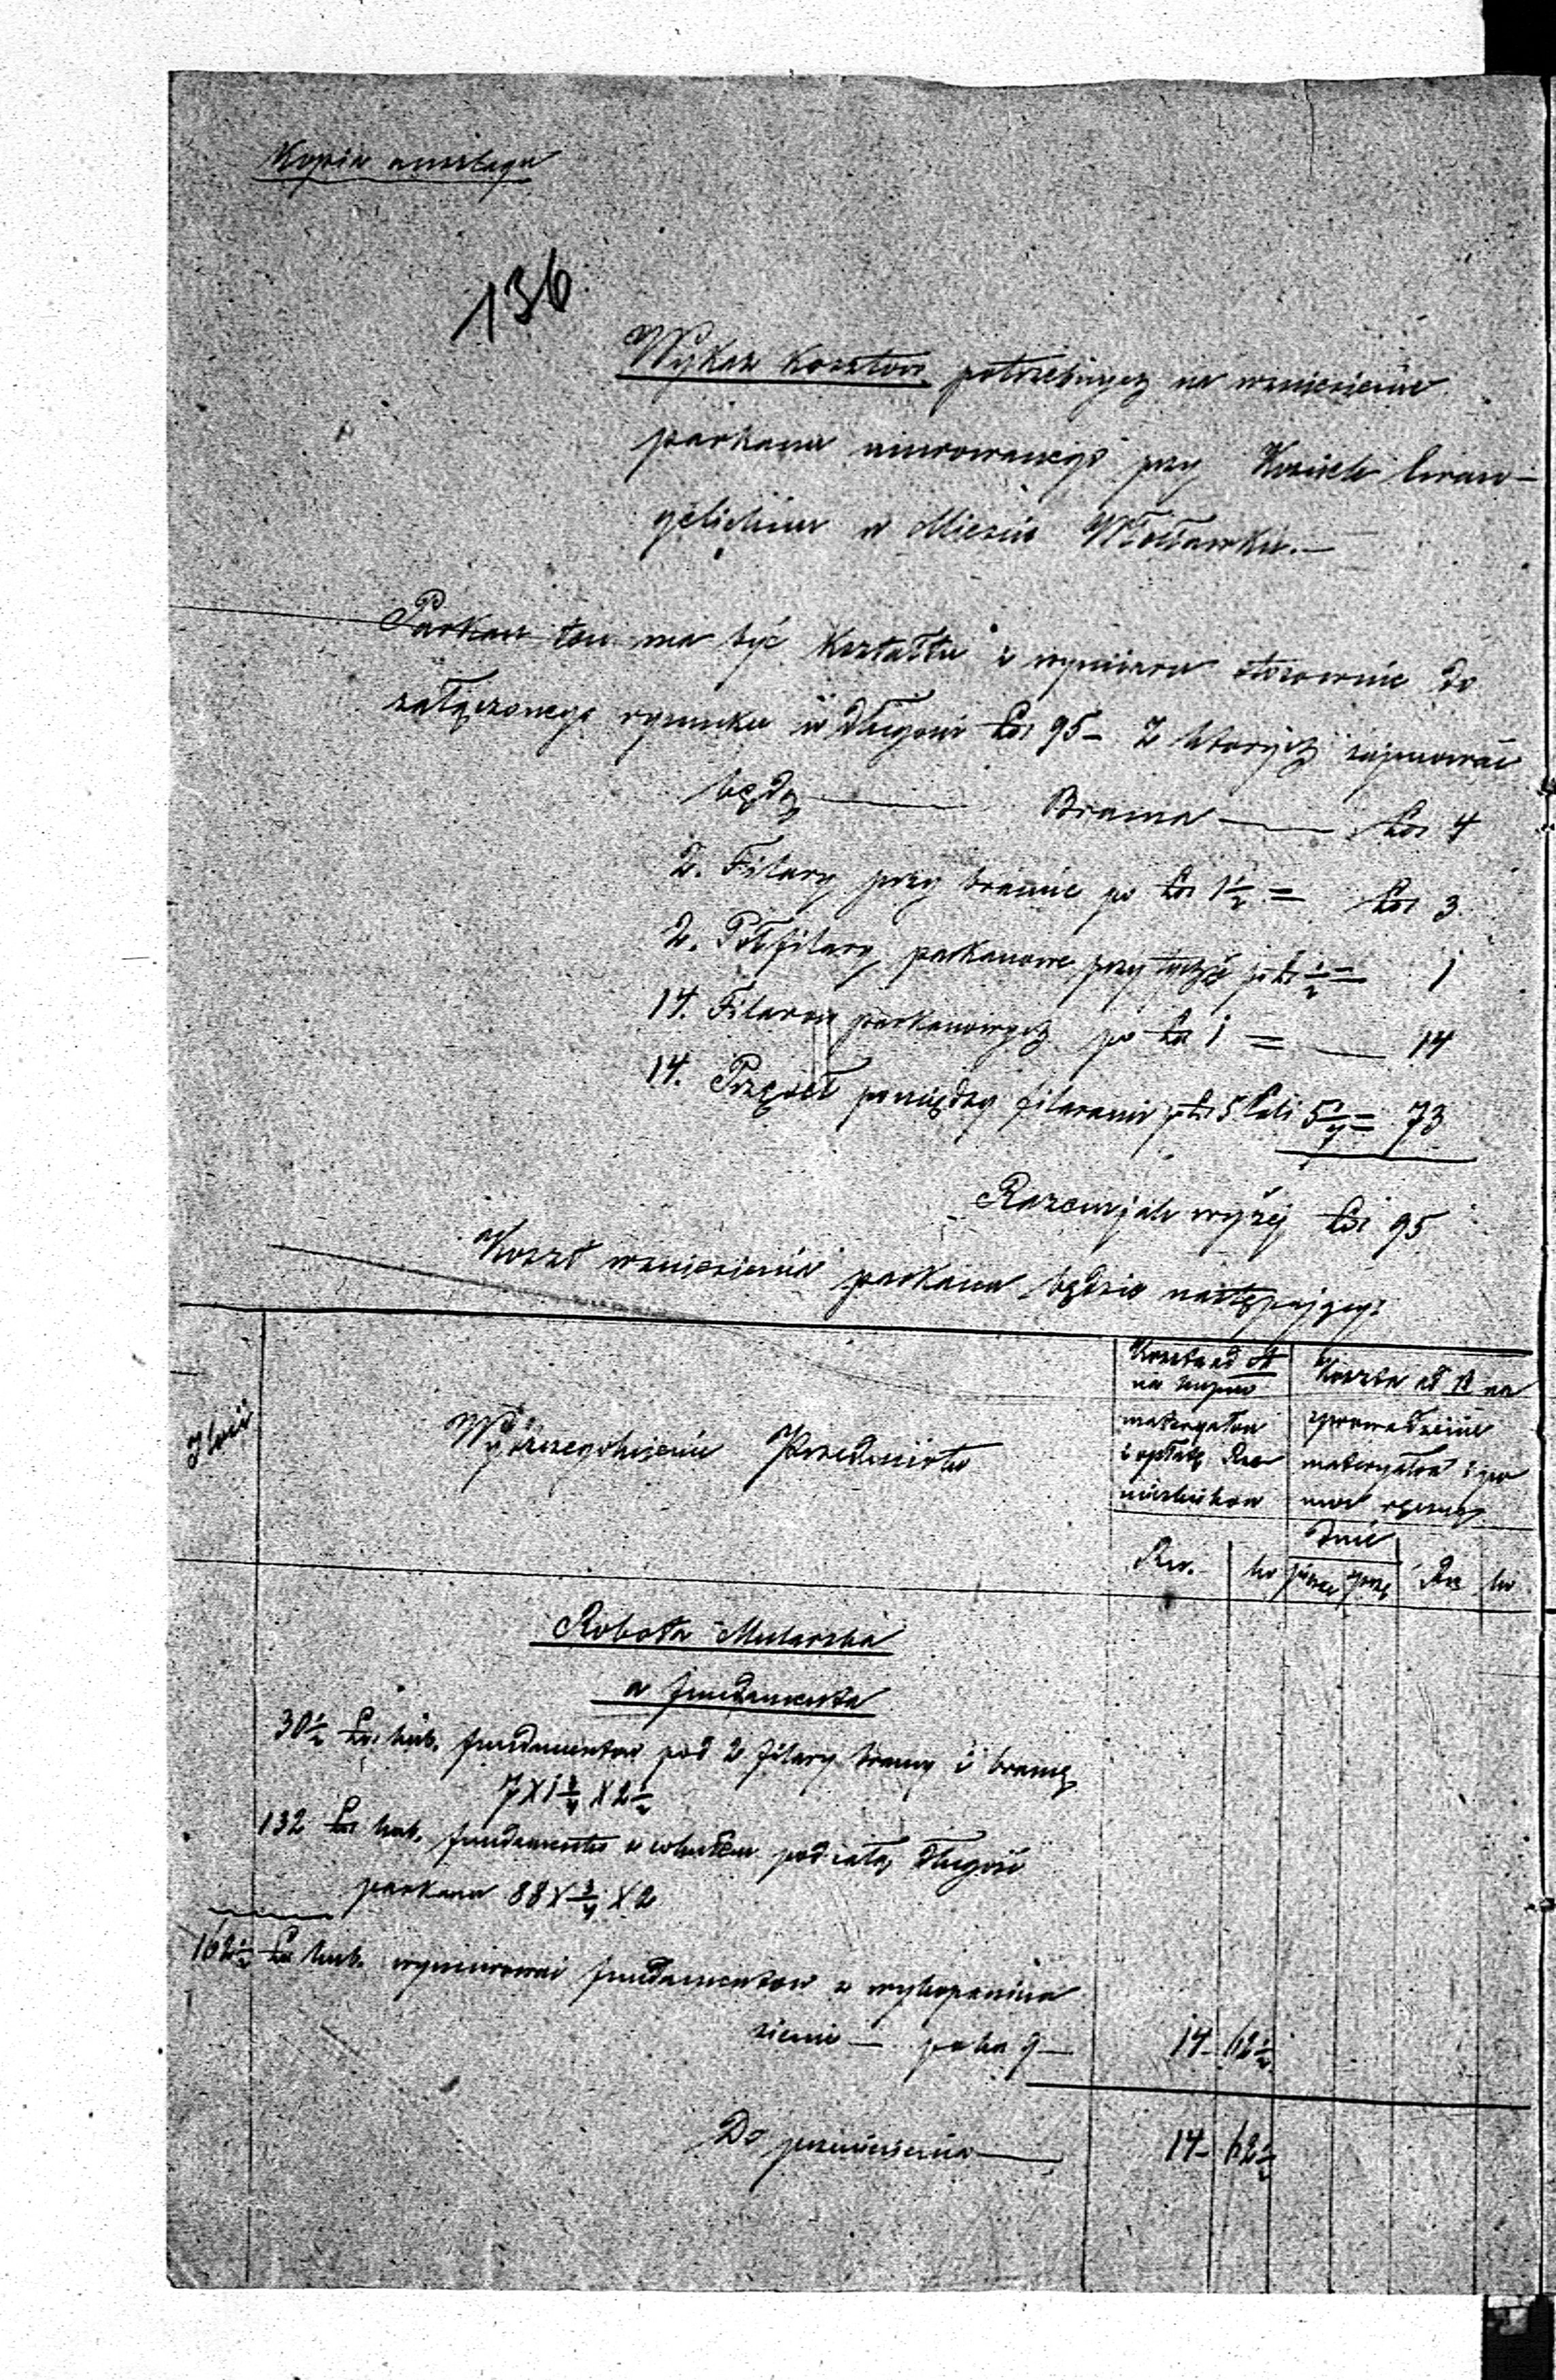 Kopia anszlagu
136
Wykaz Kosztow potrzebnych na wzniesienie
parkanu murowanego przy Kosciele Ewan-
gelickim w Miescie Włocławku.—
Parkan ten ma być Kształtu i wymiaru stosownie do
załączonego rysunku w długości Łoi 95— Z ktorych zajmować
będą — Brama — Łoi 4
2. Filary przy bramie po Łoi 1½ = Łoi 3
2. Półfilary parkanowe przy tychże po Ł ½ = 1
14. Filarow parkanowych po Łoi 1 = — 14
14. Przęseł pomiędzy filarami po Ł 5 Cali 5 1/7 = 73
Razem jak wyżej Łoi 95
Koszt wzniesienia parkanu będzie następujący:
Ilość
Wyszczegolnienie Przedmiotu
Koszta ad A
na kupno
materyałow
i opłatę Rze
mieslnikow
Koszta ad B na
sprowadzenie
materyałow i po
moc ręczną
Dnie
Rs. ko piesze sprzę Rs ko
Robota Mularska
a fundamenta
30½ Łoi kub. fundamentow pod 2 filary bramy i bramę
7 X 1¾ X 2½
132 Łoi kub. fundamentu z cokułem pod całą długość
parkanu 88 X ¾ X 2
162½ Łoi kub. wymurować fundamentow z wykopaniem
ziemi — po ko 9 — 14 – 62½
Do przeniesienia — 14 – 62½